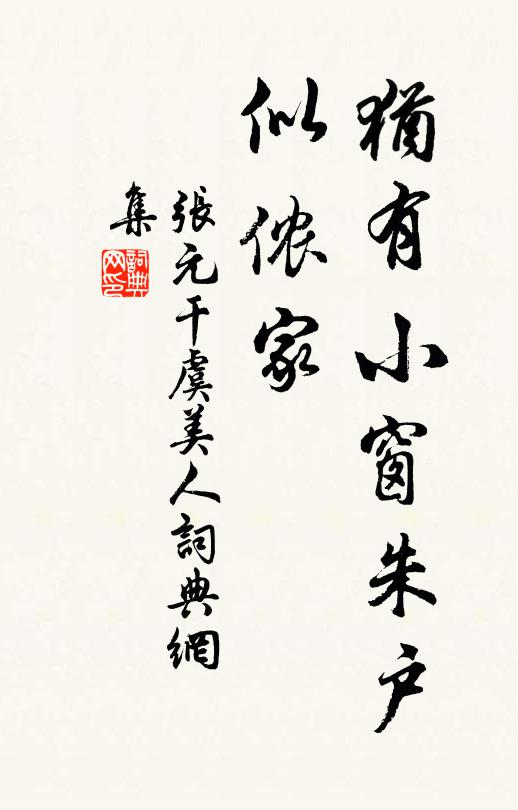 猶有小窗朱户
似侬家
張元干虞美人詞典網
集
詞典网印